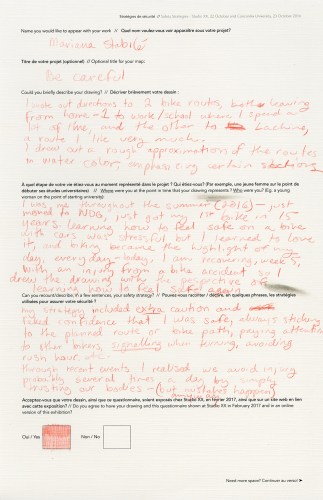 Stratégies de sécurité // Safety Strategies - Studio XX, 22 October and Concordia University, 25 October 2016
Name you would like to appear with your work // Quel nom voulez-vous voir apparaître sous votre projet?
Mariana
Titre de votre projet (optionnel) // Optional title for your map:
Be careful
Could you briefly describe your drawing? // Décrivez brièvement votre dessin :
I took out directions to 2 bike routes, both leaving
from home - 1 to work/school where I spend a
lot of time, and the other to Lachine,
a route I like very much.
I drew out a rough approximation of the routes
in water color, emphasizing certain sections
À quel étape de votre vie étiez-vous au moment représenté dans le projet? Qui étiez-vous? (Par exemple, une jeune femme sur le point de
débuter ses études universitaires) // Where were you at the point in time that your drawing represents? Who were you? (Eg. a young
woman on the point of starting university)
I was throughout the summer (2016) - just
moved to NDG, just got my 1st bike in 15
years. Learning how to feel safe on a bike
with cars was stressful but I learned to love
it, and biking became the highlight of my
day, everyday - today, I am recovering, week 5,
with an injury from a bike accident so I
drew the drawing with the perspective of
learning how to feel safe again
Can you recount/describe, in a few sentences, your safety strategy? // Pouvez-vous raconter / décrire, en quelques phrases, les stratégies
utilisées pour assurer votre sécurité ?
my strategy included extra caution and
faked confidence that I was safe, always sticking
to the planned route or bike path, paying attention
to other bikers, signalling when turning, avoiding
rush hour, etc.
through recent events I realised we avoid injury
probably several times a day by simply
trusting our bodies - (but mistakes happen)
Acceptez-vous que votre dessin, ainsi que ce questionnaire, soient exposés chez Studio XX, en février 2017, ainsi que sur un site web en lien
avec cette exposition? // Do you agree to have your drawing and this questionnaire shown at Studio XX in February 2017 and in an online
version of this exhibition?
Oui / Yes Non / No
Need more space? Continue au verso! ➤